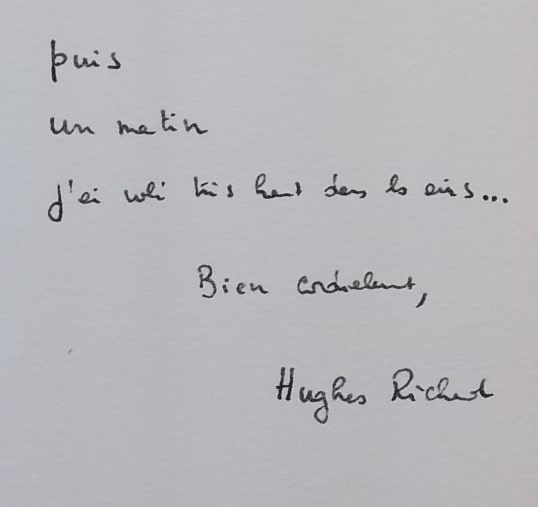 puis
un matin
j'ai volé très haut dans les airs...
Bien cordialement,
Hughes Richard